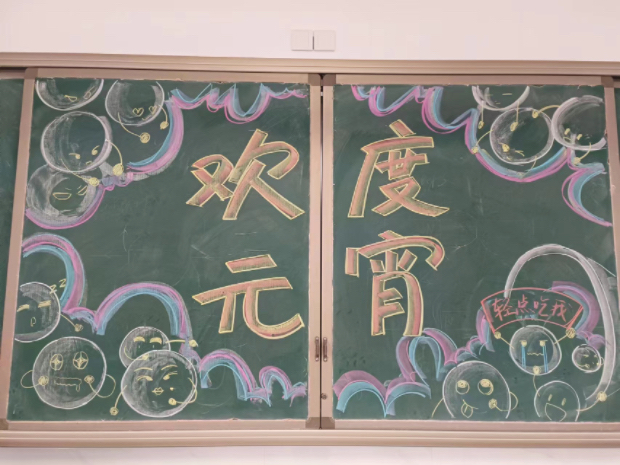 欢度
元宵
轻点吃我